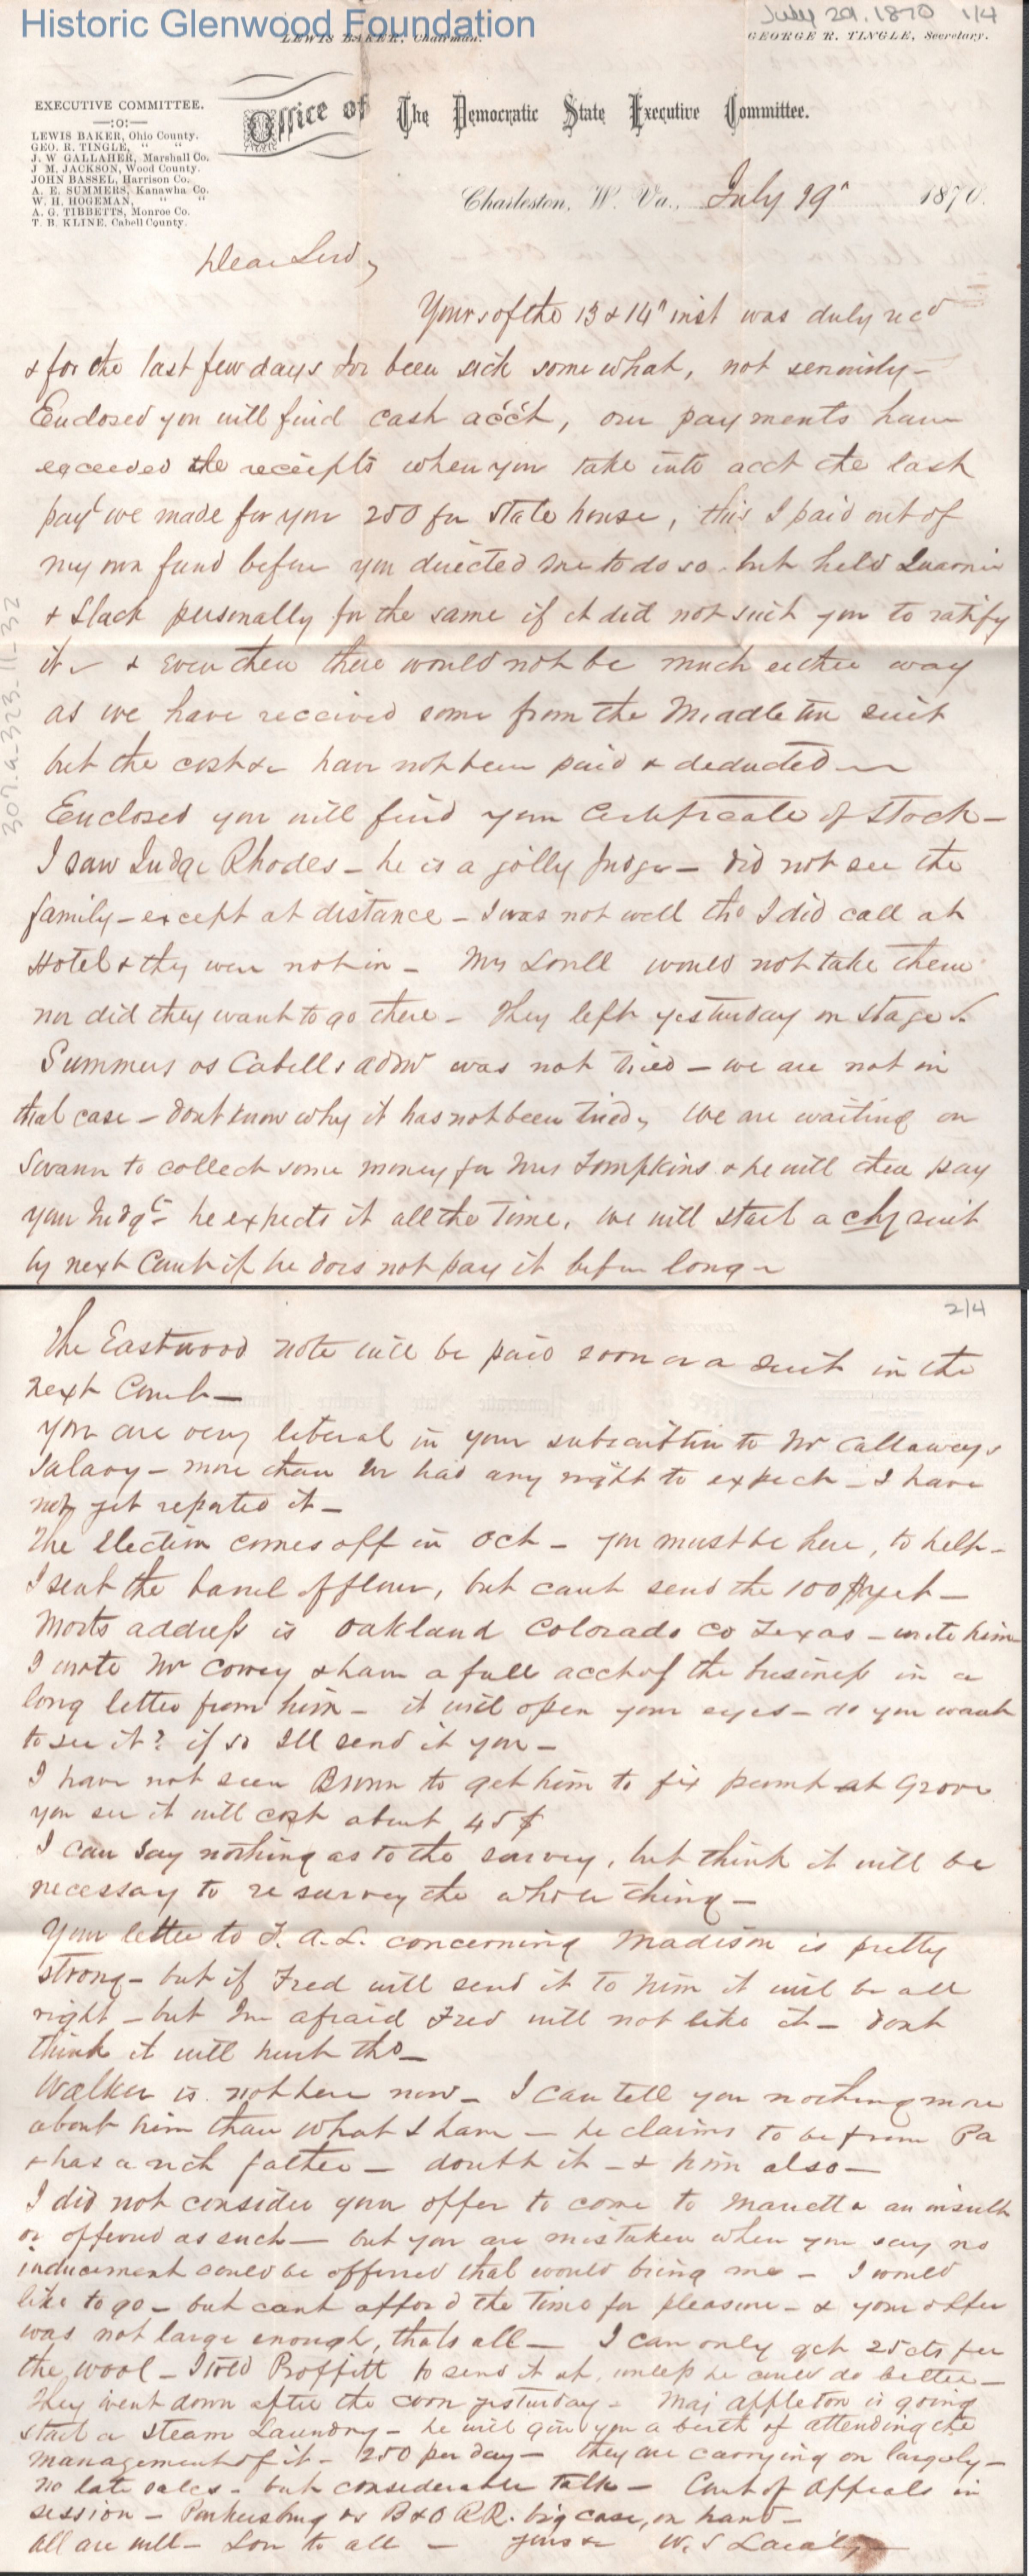 Historic Glenwood Foundation
July 29. 1870 1/4
LEWIS BAKER, Chairman.
GEORGE R. TINGLE, Secretary.
EXECUTIVE COMMITTEE.
—:o:—
LEWIS BAKER, Ohio County.
GEO. R. TINGLE, " "
J. W GALLAHER, Marshall Co.
J M. JACKSON, Wood County.
JOHN BASSEL, Harrison Co.
A. E. SUMMERS, Kanawha Co.
W. H. HOGEMAN, " "
A. G. TIBBETTS, Monroe Co.
T. B. KLINE, Cabell County.
Office of The Democratic State Executive Committee.
Charleston, W. Va., July 29" 1870.
Dear
Yours of the 13 & 14" inst was duly recd
& for the last few days been sick some what, not seriously—
Enclosed you will find cash acct, our payments have
exceeded the receipts when you take into acct the last
payt we made for you 250 for State house, this I paid out of
my own fund before you directed me to do so - but held Quarrier
& Slack personally for the same if it did not suit you to ratify
it — & even then there would not be much either way
as we have received some from the Middleton suit
but the cost &c have not been paid & deducted —
Enclosed you will find your Certificate of Stock —
I saw Judge Rhodes — he is a jolly Judge — did not see the
family — except at distance — I was not well tho I did call at
Hotel & they were not in — Mrs would not take them
nor did they want to go there — They left yesterday on stage
Summers vs Cabells admr was not tried — we are not in
that case — dont know why it has not been tried, We are waiting on
Swann to collect some money for Mrs Tompkins & he will then pay
your Judgt — he expects it all the time, we will start a chy suit
by next Court if he does not pay it before long —
307.a.323-11-32
2/4
The Eastwood note will be paid soon or a suit in the
next Court —
You are very liberal in your subscription to Mr Callaways
Salary — more than we had any right to expect — I have
not yet reported it —
The Election comes off in Oct — you must be here, to help —
I sent the barrel of flour, but cant send the 100 $ yet —
Morts address is Oakland Colorado Co Texas — write him
I wrote Mr & have a full acct of the business in a
long letter from him — it will open your eyes — do you want
to see it? if so Ill send it you —
I have not seen Brown to get him to fix pump at Grove
you see it will cost about 45 $
I can say nothing as to the survey, but think it will be
necessary to resurvey the whole thing —
Your letter to F. A. L. concerning Madison is pretty
strong — but if Fred will send it to him it will be all
right — but Im afraid Fred will not like it — dont
think it will hurt tho —
Walker is not here now — I can tell you nothing more
about him than what I have — he claims to be from Pa
& has a rich father — doubt it — & him also —
I did not consider your offer to come to Marietta an insult
or offered as such — but you are mistaken when you say no
inducement could be offered that would bring me — I would
like to go — but cant afford the time for pleasure — & your offer
was not large enough, thats all — I can only get 25 cts for
the wool — I told Proffitt to send it at, unless he could do better —
They went down after the corn yesterday — Maj Appleton is going
start a steam Laundry — he will give you a berth of attending the
management of it — 250 per day — they are carrying on largely —
no late sales — but considerable talk — Court of Appeals in
session — Parkersburg vs B & O RR. big case, on hand —
all are well — Love to all — Yours &c W. S Laidley